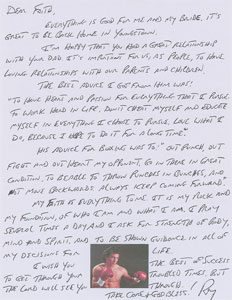 DEAR FAITH,
EVERYTHING IS GOOD FOR ME AND MY BRIDE. IT'S
GREAT TO BE BACK HOME IN YOUNGSTOWN.
I'M HAPPY THAT YOU HAD A GREAT RELATIONSHIP
WITH YOUR DAD. IT'S IMPORTANT FOR US, AS PEOPLE, TO HAVE
LOVING RELATIONSHIPS WITH OUR PARENTS AND CHILDREN
THE BEST ADVICE I GOT FROM HIM WAS:
"TO HAVE HEART AND PASSION FOR EVERYTHING THAT I
TO WORK HARD IN LIFE. DON'T CHEAT MYSELF AND
MYSELF IN EVERYTHING I CHOSE TO PURSUE. LOVE WHAT I
DO, BECAUSE I HOPE TO DO IT FOR A LONG TIME".
HIS ADVICE FOR BOXING WAS TO: "OUT PUNCH, OUT
FIGHT AND OUT HEART MY OPPONENT. GO IN THERE IN GREAT
CONDITION, TO BE ABLE TO THROW PUNCHES IN BUNCHES, AND
NOT MOVE BACKWARDS. ALWAYS KEEP COMING FORWARD".
MY FAITH IS EVERYTHING TO ME. IT IS MY ROCK,
MY FOUNDATION, OF WHO I AM AND WHAT I AM. I PRAY
SEVERAL TIMES A DAY AND I ASK FOR STRENGTH OF BODY,
MIND AND SPIRIT, AND TO BE SHOWN GUIDANCE IN ALL OF
MY DECISIONS FOR LIFE
I WISH YOU THE BEST OF SUCCESS
TO GET THROUGH TROUBLED TIMES, BUT
THE LORD WILL SEE YOU THROUGH.
TAKE CARE & GOD BLESS! Ray